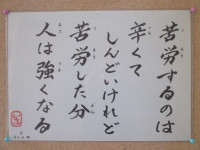 苦労するのは
辛くて
しんどいけれど
苦労した分
人は強くなる